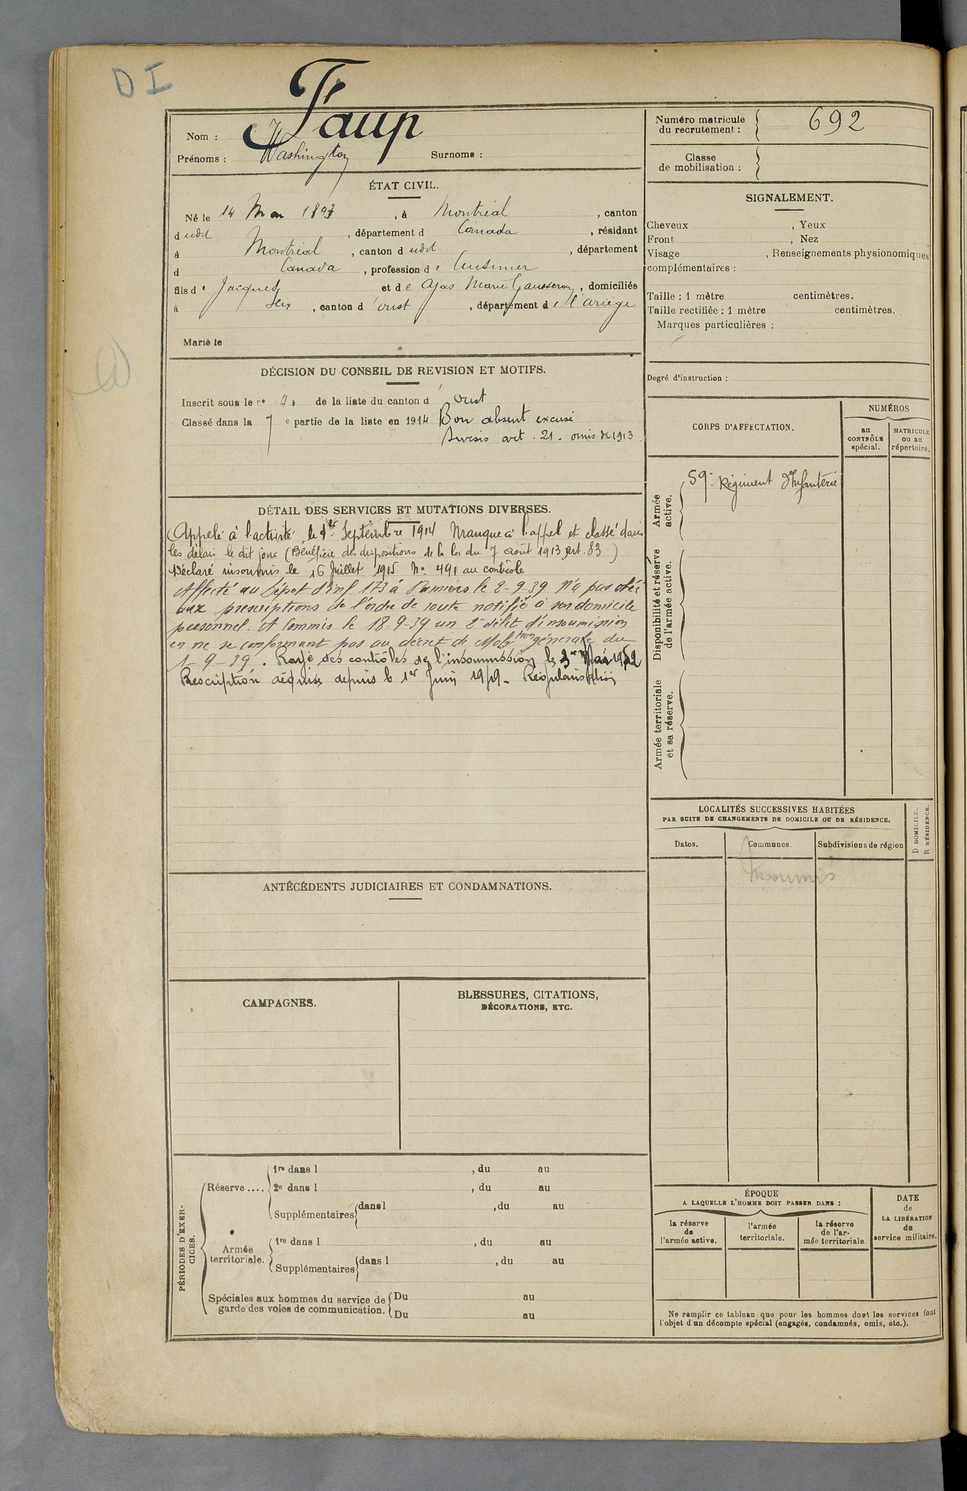 D I
Nom : Faup
Prénoms : Washington Surnoms :
Numéro matricule du recrutement : 692
Classe de mobilisation :
ÉTAT CIVIL.
Né le 14 Mai 1893, à Montréal, canton
d udit, département d Canada, résidant
à Montréal, canton d udit, département
d Canada, profession de Cuisinier
fils de Jacques et de Ajas Marie Gausseran, domiciliés
à Seix, canton d'oust, département de l'ariège
Marié le
SIGNALEMENT.
Cheveux , Yeux
Front , Nez
Visage , Renseignements physionomiques
complémentaires :
Taille : 1 mètre centimètres.
Taille rectifiée : 1 mètre centimètres.
Marques particulières :
Degré d'instruction :
DÉCISION DU CONSEIL DE REVISION ET MOTIFS.
Inscrit sous le no de la liste du canton d oust
Classé dans la 7e partie de la liste en 1914 Bon absent excusé
Sursis art. 21. omis de 1913
DÉTAIL DES SERVICES ET MUTATIONS DIVERSES.
Appelé à l'activité le 1er Septembre 1914 Manque à l'appel et classé dans
les délai le dit jour (Bénéficie des dispositions de la loi du 7 août 1913 art. 83)
Déclaré insoumis le 16 Juillet 1915 No 491 au contrôle
Affecté au Dépot d'inf 173 à Pamiers le 2-9-39 N'a pas obéi
aux prescriptions de l'ordre de route notifié à son domicile
personnel. A commis le 18.9.39 un 2e délit d'insoumission
en ne se conformant pas au décret de Mobtion générale du
1-9-39. Rayé des contrôles de l'insoumission le 3 Mai 1952
Prescription acquise depuis le 1er Juin 1949 - Régularisation
CORPS D'AFFECTATION.
NUMÉROS
au CONTRÔLE spécial.
MATRICULE ou au répertoire.
Armée active.
59e Régiment d'Infanterie
Disponibilité et réserve de l'armée active.
Armée territoriale et sa réserve.
LOCALITÉS SUCCESSIVES HABITÉES
PAR SUITE DE CHANGEMENTS DE DOMICILE OU DE RÉSIDENCE.
Dates.
Communes.
Subdivisions de région
D DOMICILE.
R RÉSIDENCE.
Insoumis
ANTÉCÉDENTS JUDICIAIRES ET CONDAMNATIONS.
CAMPAGNES.
BLESSURES, CITATIONS,
DÉCORATIONS, ETC.
PÉRIODES D'EXERCICES.
Réserve....
1re dans l , du au
2e dans l , du au
Supplémentaires dans l , du au
Armée territoriale.
1re dans l , du au
Supplémentaires dans l , du au
Spéciales aux hommes du service de
garde des voies de communication.
Du au
Du au
ÉPOQUE
A LAQUELLE L'HOMME DOIT PASSER DANS :
la réserve de l'armée active.
l'armée territoriale.
la réserve de l'armée territoriale.
DATE
de
LA LIBÉRATION
du
service militaire.
Ne remplir ce tableau que pour les hommes dont les services font
l'objet d'un décompte spécial (engagés, condamnés, omis, etc.).